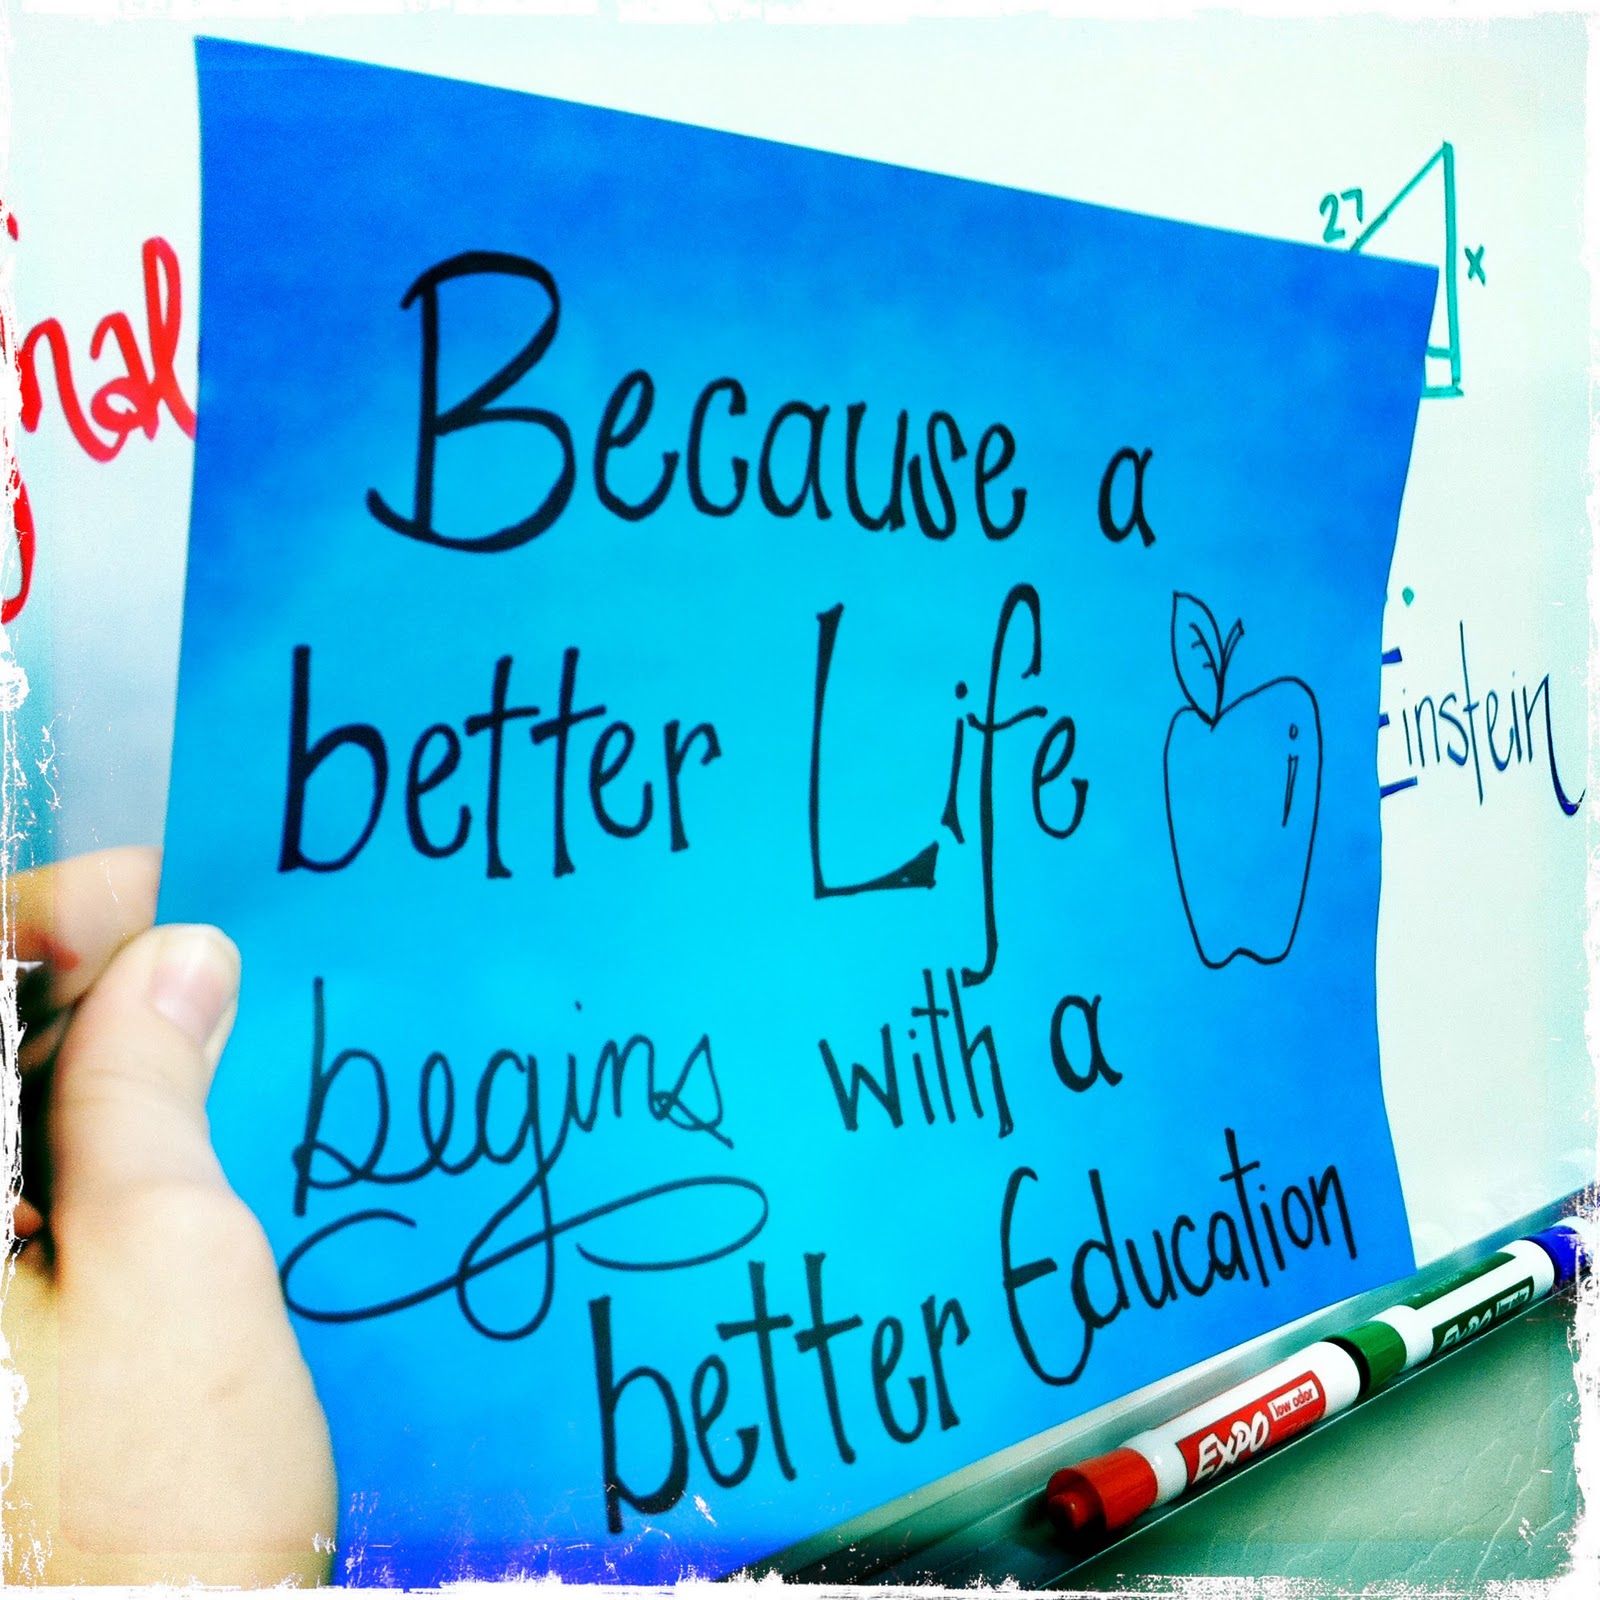 Because a
better Life
begins with a
better Education
27
x
Einstein
EXPO
low odor
EXPO